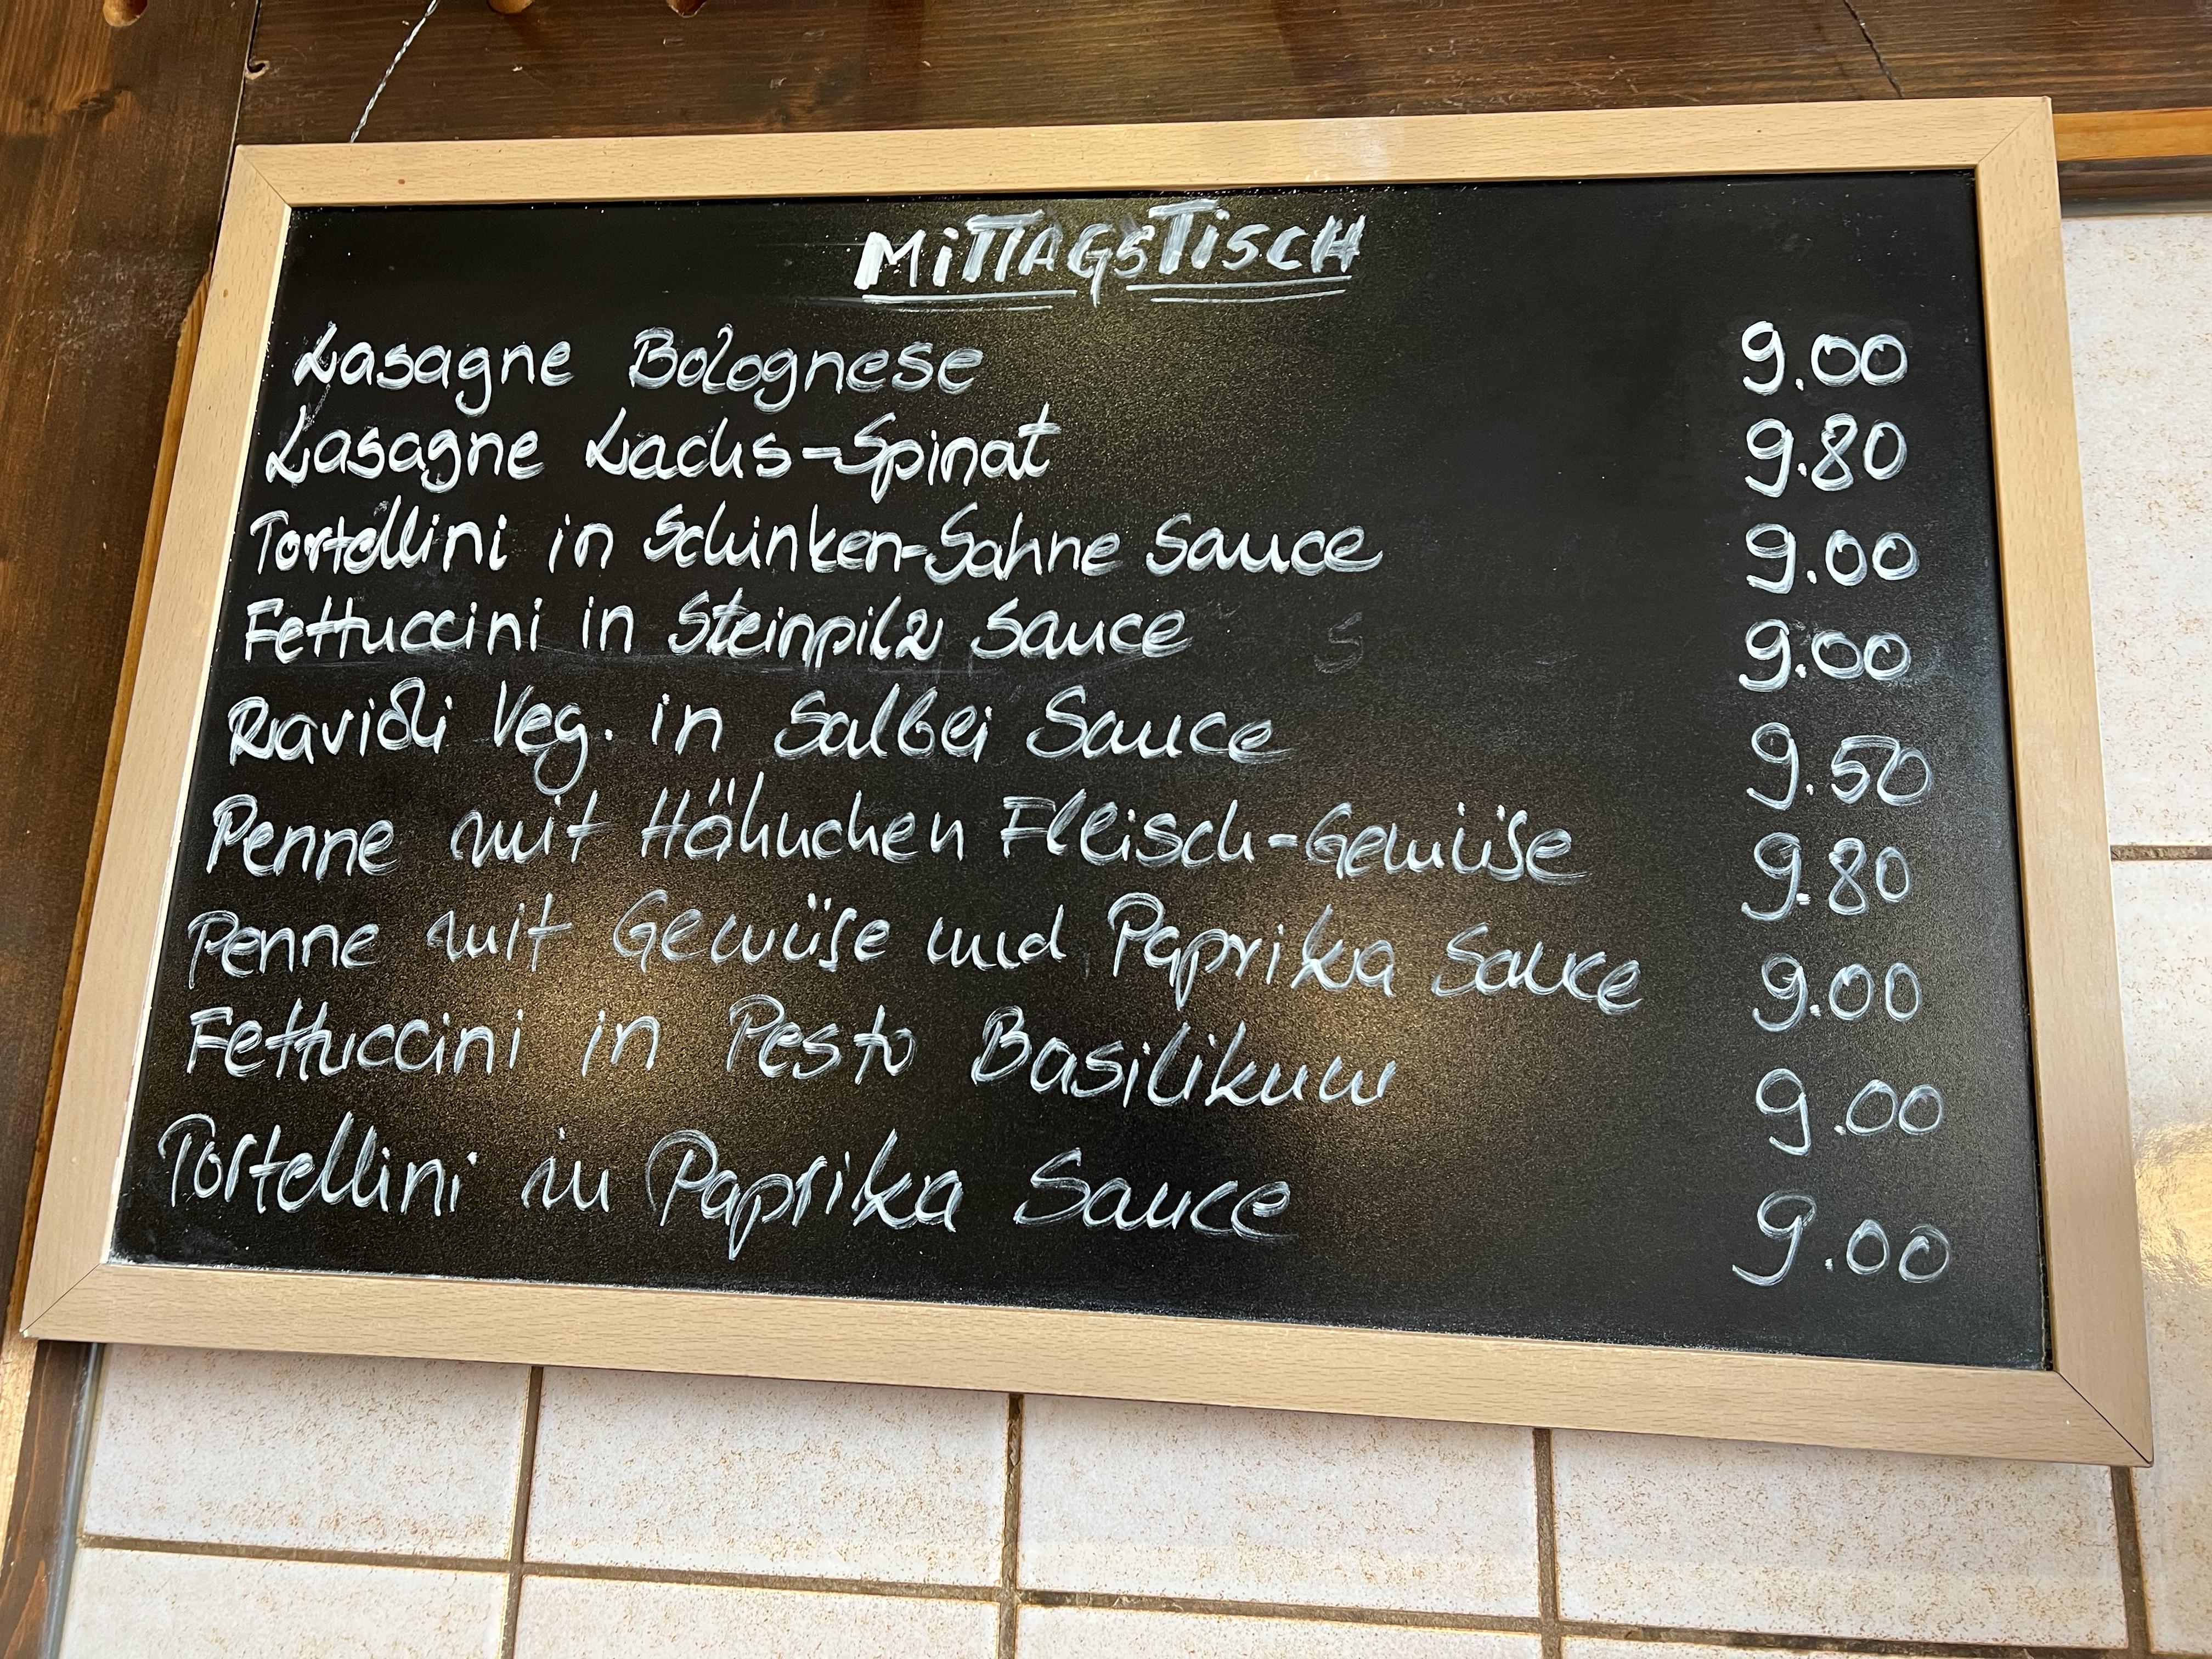 MiTTAGSTiSCH
Lasagne Bolognese 9.00
Lasagne Lachs-Spinat 9.80
Tortellini in Schinken-Sahne Sauce 9.00
Fettuccini in Steinpilz Sauce 9.00
Ravioli Veg. in Salbei Sauce 9.50
Penne mit Hähnchen Fleisch-Gemüse 9.80
Penne mit Gemüse und Paprika Sauce 9.00
Fettuccini in Pesto Basilikum 9.00
Tortellini in Paprika Sauce 9.00